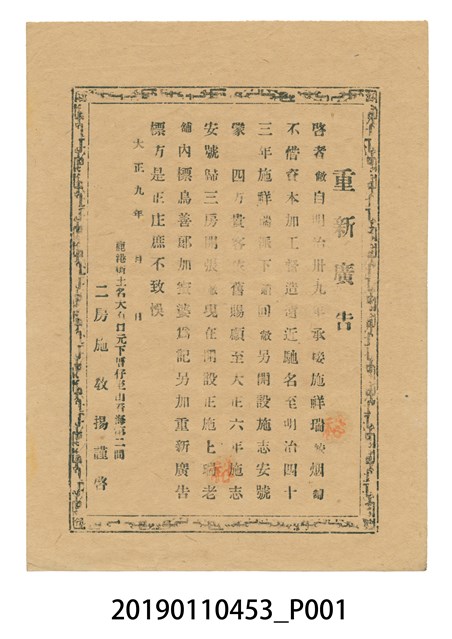 重新廣告
啓者敝自明治卅九年承接施祥瑞烟
不惜資本加工督造遠近馳名至明治四十
三年施祥瑞派下回敝另開設施志安號
蒙四方貴客依舊賜顧至大正六年施志
安號歸三房開張敝現在開設正施上瑞老
舖內標烏善郎加宝婆爲記另加重新廣告
標方是正庄庶不致悞
大正九年 月 日
鹿港街土名大有口元下厝仔
二房施教揚謹啓
20190110453_P001